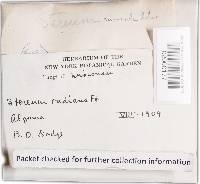 Stereum
HERBARIUM OF THE
NEW YORK BOTANICAL GARDEN
Fungi of Wisconsin
Stereum radians Fr
Algoma
VIII-1909
B. O. Dodge
Packet checked for further collection information